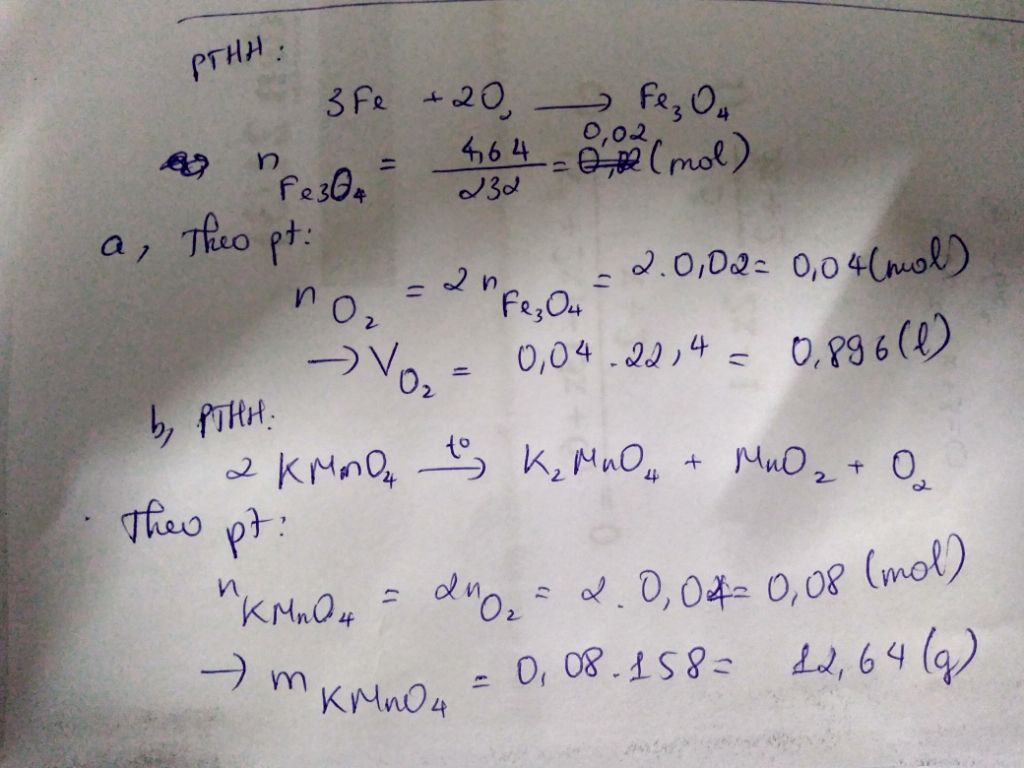 PTHH:
3Fe + 2O₂ → Fe₃O₄
n Fe₃O₄ = 4,64/232 = 0,02 (mol)
a, Theo pt:
n O₂ = 2 n Fe₃O₄ = 2.0,02 = 0,04 (mol)
→ V O₂ = 0,04 . 22,4 = 0,896 (l)
b, PTHH:
2 KMnO₄ —t°→ K₂MnO₄ + MnO₂ + O₂
Theo pt:
n KMnO₄ = 2n O₂ = 2. 0,04 = 0,08 (mol)
→ m KMnO₄ = 0,08.158 = 12,64 (g)